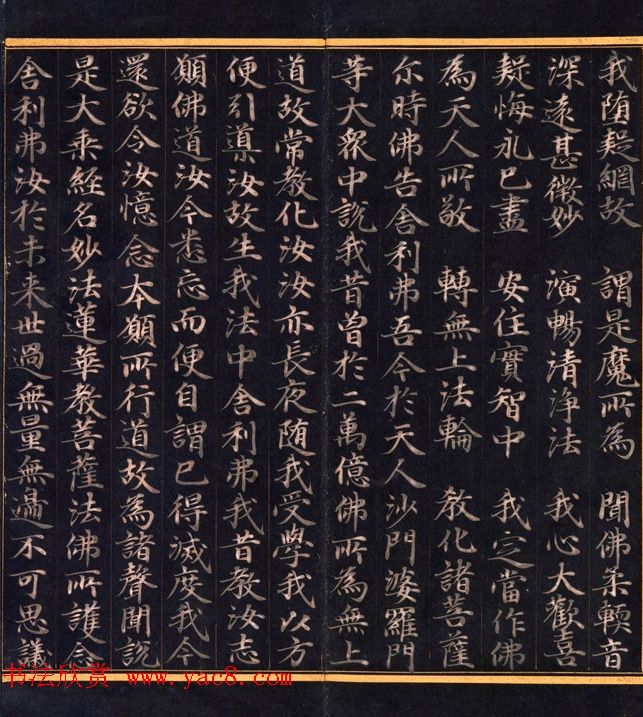 我墮疑網故 謂是魔所為 聞佛柔輭音
深遠甚微妙 演暢清淨法 我心大歡喜
疑悔永已盡 安住實智中 我定當作佛
為天人所敬 轉無上法輪 教化諸菩薩
尒時佛告舍利弗吾今於天人沙門婆羅門
等大眾中說我昔曾於二萬億佛所為無上
道故常教化汝汝亦長夜随我受學我以方
便引導汝故生我法中舍利弗我昔教汝志
願佛道汝今悉忘而便自謂已得滅度我今
還欲令汝憶念本願所行道故為諸聲聞說
是大乘經名妙法蓮華教菩薩法佛所護念
舍利弗汝於未来世過無量無邊不可思議
书法欣赏 www.yac8.com